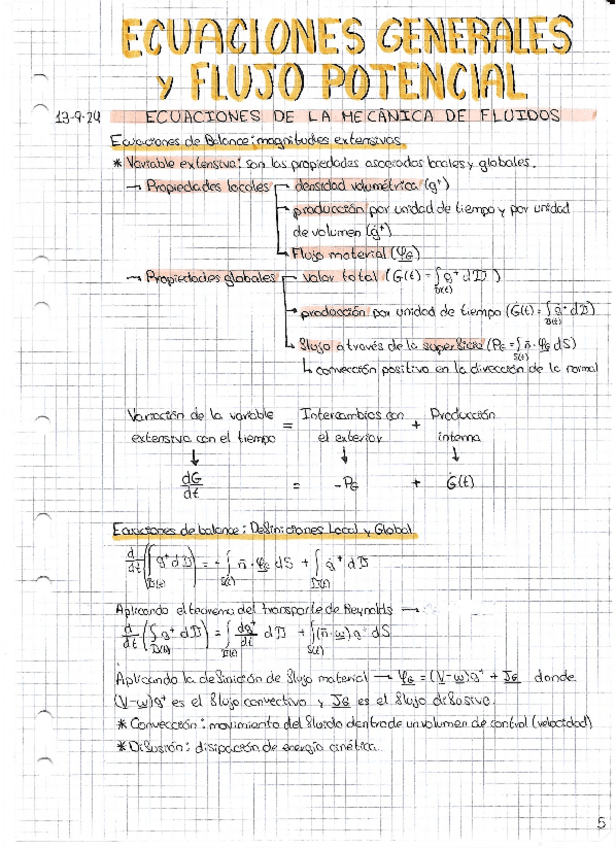 ECUACIONES GENERALES
Y FLUJO POTENCIAL
13-9-24 ECUACIONES DE LA MECÁNICA DE FLUIDOS
Ecuaciones de Balance: magnitudes extensivas
* Variable extensiva: son las propiedades asociadas locales y globales.
→ Propiedades locales → densidad volumétrica (g⁺)
→ producción por unidad de tiempo y por unidad
de volumen (ġ⁺)
→ Flujo material (φ_G)
→ Propiedades globales → valor total (G(t) = ∫_{D(t)} g⁺ dD)
→ producción por unidad de tiempo (Ġ(t) = ∫_{D(t)} ġ⁺ dD)
→ flujo a través de la superficie (P_G = ∫_{S(t)} n̄ · φ_G dS)
↳ convección positiva en la dirección de la normal
Variación de la variable = Intercambios con + Producción
extensiva con el tiempo el exterior interna
↓ ↓ ↓
dG/dt = -P_G + Ġ(t)
Ecuaciones de balance: Definiciones Local y Global
d/dt (∫_{D(t)} g⁺ dD) = - ∫_{S(t)} n̄ · φ_G dS + ∫_{D(t)} ġ⁺ dD
Aplicando el teorema del transporte de Reynolds →
d/dt (∫_{D(t)} g⁺ dD) = ∫_{D(t)} dg⁺/dt dD + ∫_{S(t)} (n̄ · w) g⁺ dS
Aplicando la definición de flujo material → φ_G = (V - w)g⁺ + J_G donde
(V - w)g⁺ es el flujo convectivo y J_G es el flujo difusivo.
* Convección: movimiento del fluido dentro de un volumen de control (velocidad)
* Difusión: disipación de energía cinética.
5